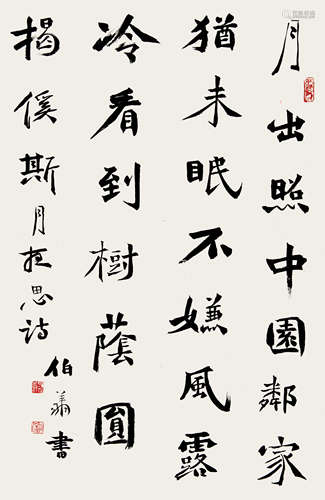 月出照中園鄰家
猶未眠不嫌風露
冷看到樹蔭圓
揭傒斯月夜思诗
伯 書